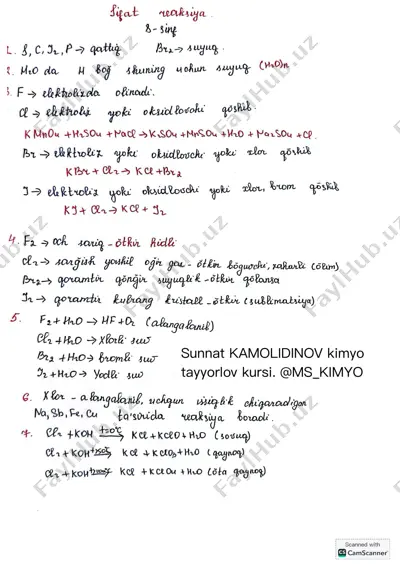 Sifat reaksiya.
8-sinf
1. S, C, I2, P → qattiq Br2 → suyuq.
2. H2O da H bog' shuning uchun suyuq (H2O)n
3. F → elektrolizda olinadi.
Cl → elektroliz yoki oksidlovchi qo'shib.
KMnO4 + H2SO4 + NaCl → K2SO4 + MnSO4 + H2O + Na2SO4 + Cl.
Br → elektroliz yoki oksidlovchi yoki xlor qo'shib
KBr + Cl2 → KCl + Br2
I → elektroliz yoki oksidlovchi yoki xlor, brom qo'shib
KI + Cl2 → KCl + I2
4. F2 → och sariq - o'tkir hidli
Cl2 → sarg'ish yashil og'ir gaz - o'tkir bo'g'uvchi, zaharli (o'lim)
Br2 → qoramtir qo'ng'ir suyuqlik - o'tkir qo'lansa
I2 → qoramtir kulrang kristall - o'tkir (sublimatsiya)
5. F2 + H2O → HF + O2 (alangalanib)
Cl2 + H2O → Xlorli suv
Br2 + H2O → bromli suv
I2 + H2O → Yodli suv
Sunnat KAMOLIDINOV kimyo
tayyorlov kursi. @MS_KIMYO
6. Xlor - alangalanib, uchqun issiqlik chiqaradigan
Na, Sb, Fe, Cu ta'sirida reaksiya boradi.
7. Cl2 + KOH t=0°C → KCl + KClO + H2O (sovuq)
Cl2 + KOH → KCl + KClO3 + H2O (qaynoq)
Cl2 + KOH → KCl + KClO4 + H2O (o'ta qaynoq)
FaylHub.uz
Scanned with
CamScanner